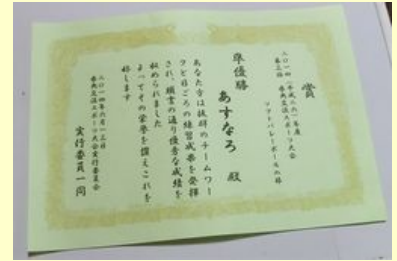 賞
二〇一四(平成二六)年度
県央交流スポーツ大会
ソフトバレーボールの部
準優勝
あすなろ 殿
あなた方は抜群のチームワー
クと日ごろの練習成果を発揮
され、頭書の通り優秀な成績を
収められました
よってその栄誉を讃えこれを
称します
二〇一四年六月一三日
県央交流スポーツ大会実行委員会
実行委員一同